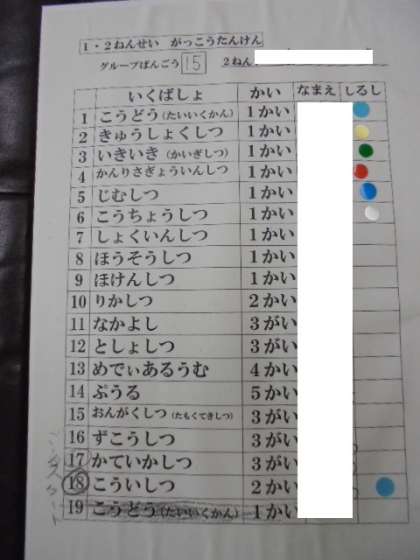 1・2ねんせい がっこうたんけん
グループばんごう 15 2ねん
いくばしょ かい なまえ しるし
1 こうどう(たいいくかん) 1かい
2 きゅうしょくしつ 1かい
3 いきいき(かいぎしつ) 1かい
4 かんりさぎょういんしつ 1かい
5 じむしつ 1かい
6 こうちょうしつ 1かい
7 しょくいんしつ 1かい
8 ほうそうしつ 1かい
9 ほけんしつ 1かい
10 りかしつ 2かい
11 なかよし 3がい
12 としょしつ 3がい
13 めでぃあるうむ 4かい
14 ぷうる 5かい
15 おんがくしつ(たもくてきしつ) 3がい
16 ずこうしつ 3がい
17 かていかしつ 3がい
18 こういしつ 2かい
19 こうどう(たいいくかん) 1かい